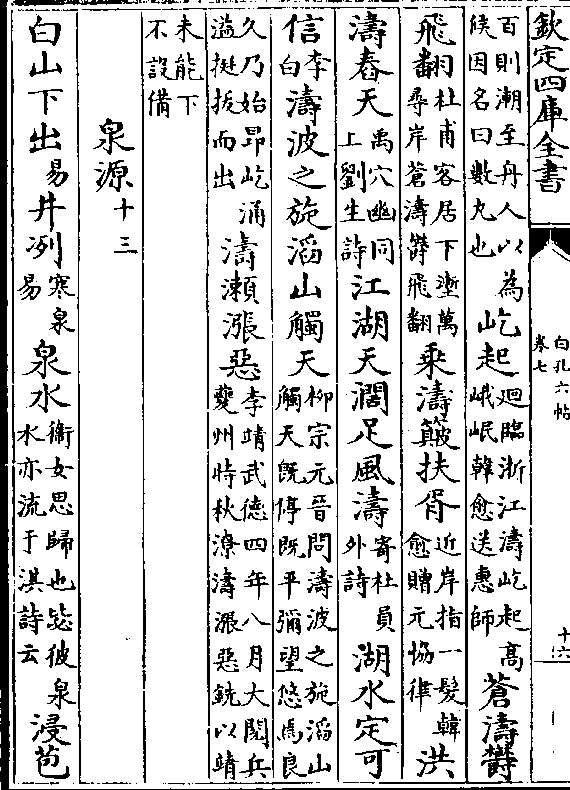 欽定四庫全書
白孔六帖
卷七
十六
百則潮至舟人以為
候因名曰數丸也
屹起
迴臨浙江濤屹起高
峨岷韓愈送惠師
蒼濤鬱
飛翻
杜甫客居下塹萬
尋岸蒼濤鬱飛翻
乘濤簸扶胥
近岸指一髮韓
愈贈元協律
洪
濤舂天
禹穴幽同
上劉生詩
江湖天濶足風濤
寄杜員
外詩
湖水定可
信
李
白
濤波之旋滔山觸天
柳宗元晉問濤波之旋滔山
觸天既停既平彌望悠焉良
久乃始昂屹涌
溢挺拔而出
濤瀨漲惡
李靖武德四年八月大閱兵
夔州時秋潦濤漲惡銑以靖
未能下
不設備
泉源十三
白山下出
易
井冽
寒泉
易
泉水
衛女思歸也毖彼泉
水亦流于淇詩云
浸苞